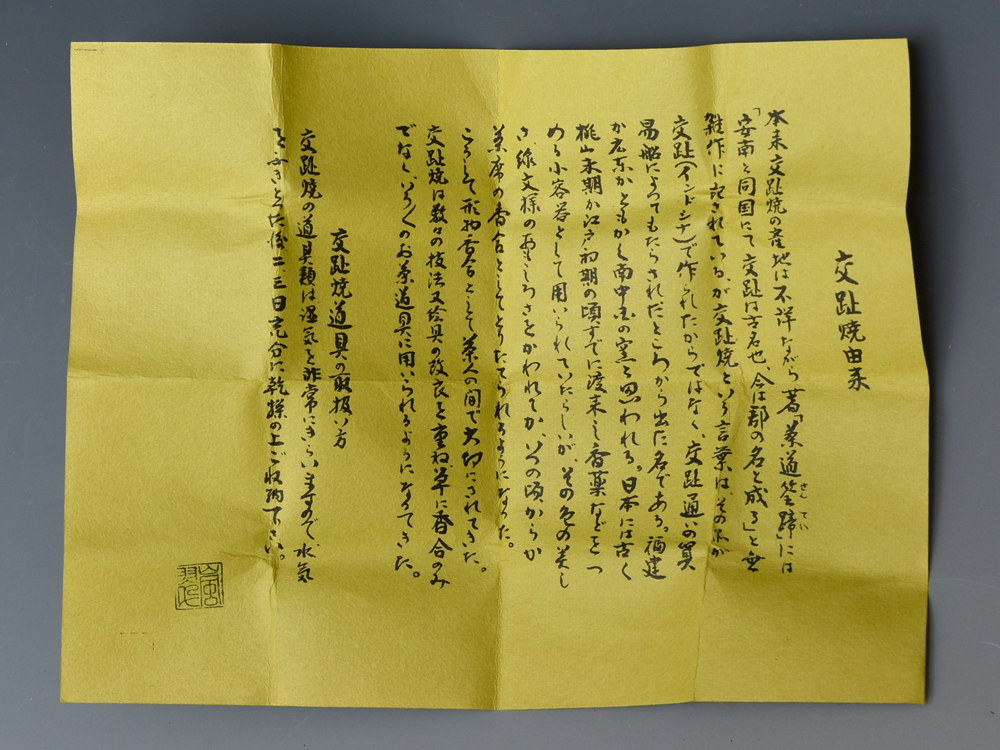 交趾焼由来
本来交趾焼の産地は不詳ながら著「茶道筌蹄」には
さんてい
「安南と同国にて交趾は古名也、今は郡の名と成る」と無
雑作に記されている、が交趾焼という言葉は、その品が
交趾(インドシナ)で作られたからではなく、交趾通いの貿
易船によってもたらされたところから出た名である。福建
か広東かともかく南中国の窯と思われる。日本には古く
桃山末期か江戸初期の頃すでに渡来し香薬などをつ
める小容器として用いられていたらしいが、その色の美し
さ、線文様のおもしろさをかわれてか いつの頃からか
茶席の香合としてとりたてられるようになった。
こうして形物香合として茶人の間で大切にされてきた。
交趾焼は数々の技法又絵具の改良を重ね、単に香合のみ
でなく、いろ〱のお茶道具に用いられるようになってきた。
交趾焼道具の取扱い方
交趾焼の道具類は湿気を非常にきらいますので、水気
をふきとった後二、三日充分に乾燥の上ご収納下さい。